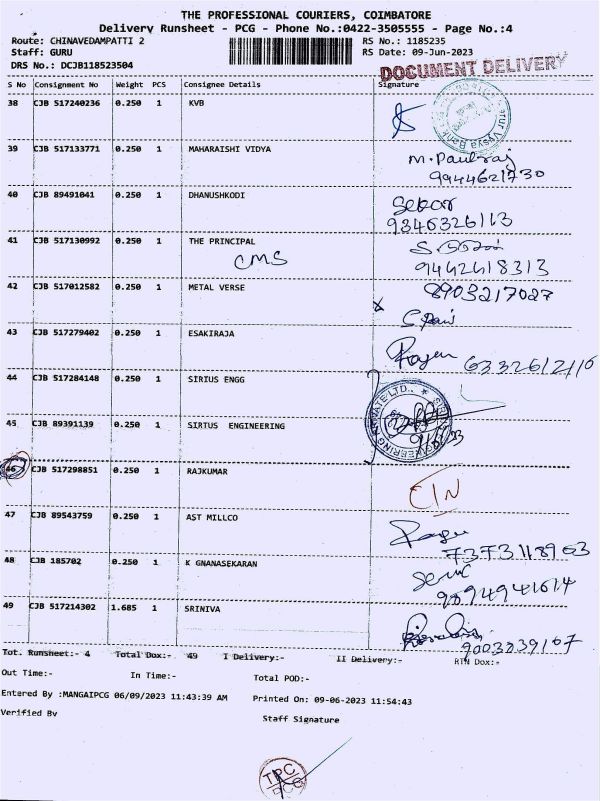 THE PROFESSIONAL COURIERS, COIMBATORE
Delivery Runsheet - PCG - Phone No.:0422-3505555 - Page No.:4
Route: CHINAVEDAMPATTI 2 RS No.: 1185235
Staff: GURU RS Date: 09-Jun-2023
DRS No.: DCJB118523504
DOCUMENT DELIVERY
S No Consignment No Weight PCS Consignee Details Signature
38 CJB 517240236 0.250 1 KVB
39 CJB 517133771 0.250 1 MAHARAISHI VIDYA
M. Paulraj
9944621730
40 CJB 89491041 0.250 1 DHANUSHKODI
Sekar
9346326113
41 CJB 517130992 0.250 1 THE PRINCIPAL
CMS
9442418313
42 CJB 517012582 0.250 1 METAL VERSE 8903217027
43 CJB 517279402 0.250 1 ESAKIRAJA
6332612116
44 CJB 517284148 0.250 1 SIRIUS ENGG
45 CJB 89391139 0.250 1 SIRTUS ENGINEERING
46 CJB 517298851 0.250 1 RAJKUMAR
CIN
47 CJB 89543759 0.250 1 AST MILLCO
7373118963
48 CJB 185702 0.250 1 K GNANASEKARAN
9894941614
49 CJB 517214302 1.685 1 SRINIVA
9003239167
Tot. Runsheet:- 4 Total Dox:- 49 I Delivery:- II Delivery:- RTN Dox:-
Out Time:- In Time:- Total POD:-
Entered By :MANGAIPCG 06/09/2023 11:43:39 AM Printed On: 09-06-2023 11:54:43
Verified By Staff Signature
TPC
PCG